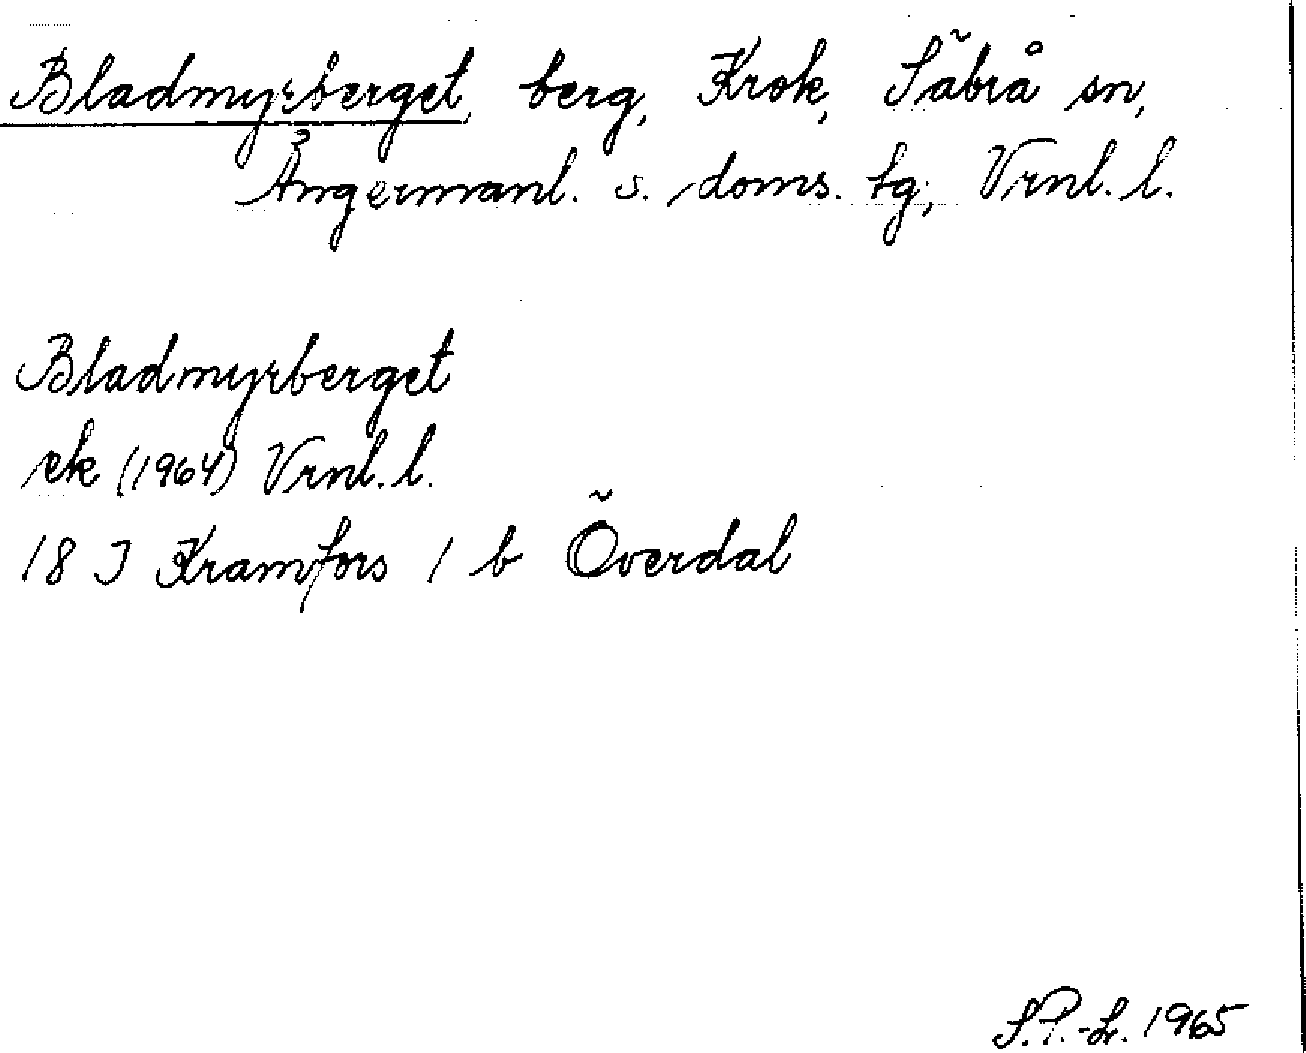 Bladmyrberget, berg, Krok, Säbrå sn,
Ångermanl. s. doms. tg, Vrnl. l.
Bladmyrberget
ek (1964) Vrnl. l.
18 I Kramfors 1 b Överdal
1965